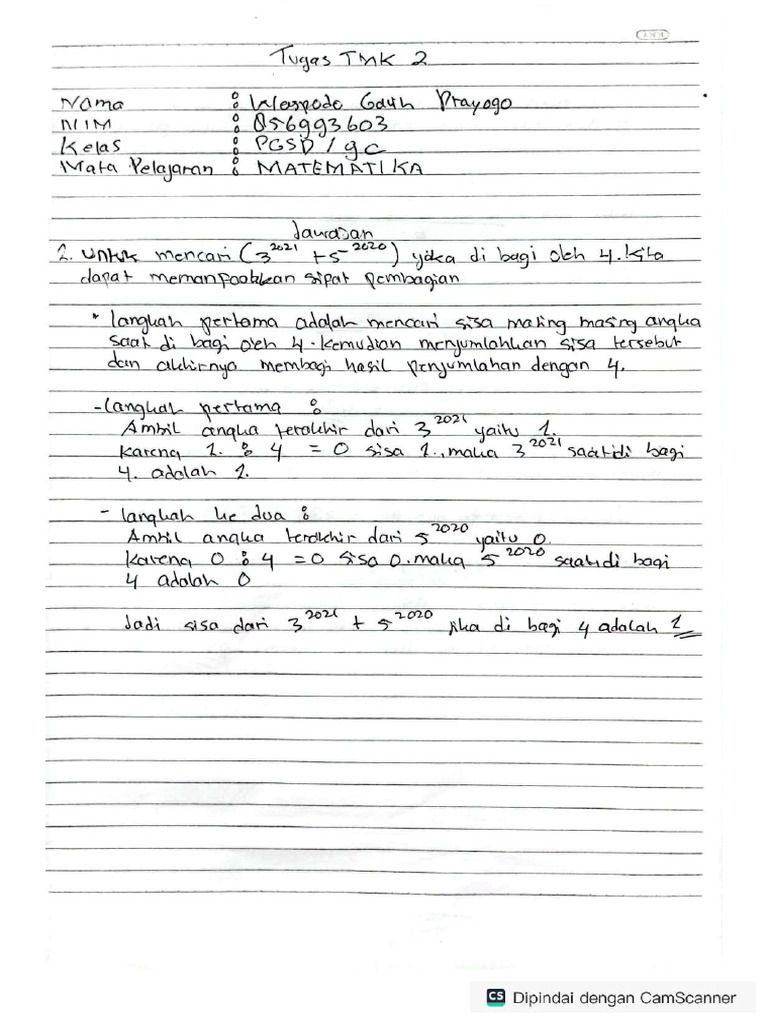 Tugas TMK 2
Nama : Waspodo Galih Prayogo
NIM : 856993603
Kelas : PGSD / 9c
Mata Pelajaran : MATEMATIKA
Jawaban
2. untuk mencari (3^2021 + 5^2020) jika di bagi oleh 4. kita
dapat memanpaatkan sipat pembagian
* langkah pertama adalah mencari sisa masing masing angka
saat di bagi oleh 4. kemudian menjumlahkan sisa tersebut
dan akhirnya membagi hasil penjumlahan dengan 4.
- langkah pertama :
Ambil angka terakhir dari 3^2021 yaitu 1.
karena 1 : 4 = 0 sisa 1, maka 3^2021 saat di bagi
4. adalah 1.
- langkah ke dua :
Ambil angka terakhir dari 5^2020 yaitu 0.
karena 0 : 4 = 0 sisa 0. maka 5^2020 saat di bagi
4 adalah 0
Jadi sisa dari 3^2021 + 5^2020 jika di bagi 4 adalah 1
CS Dipindai dengan CamScanner